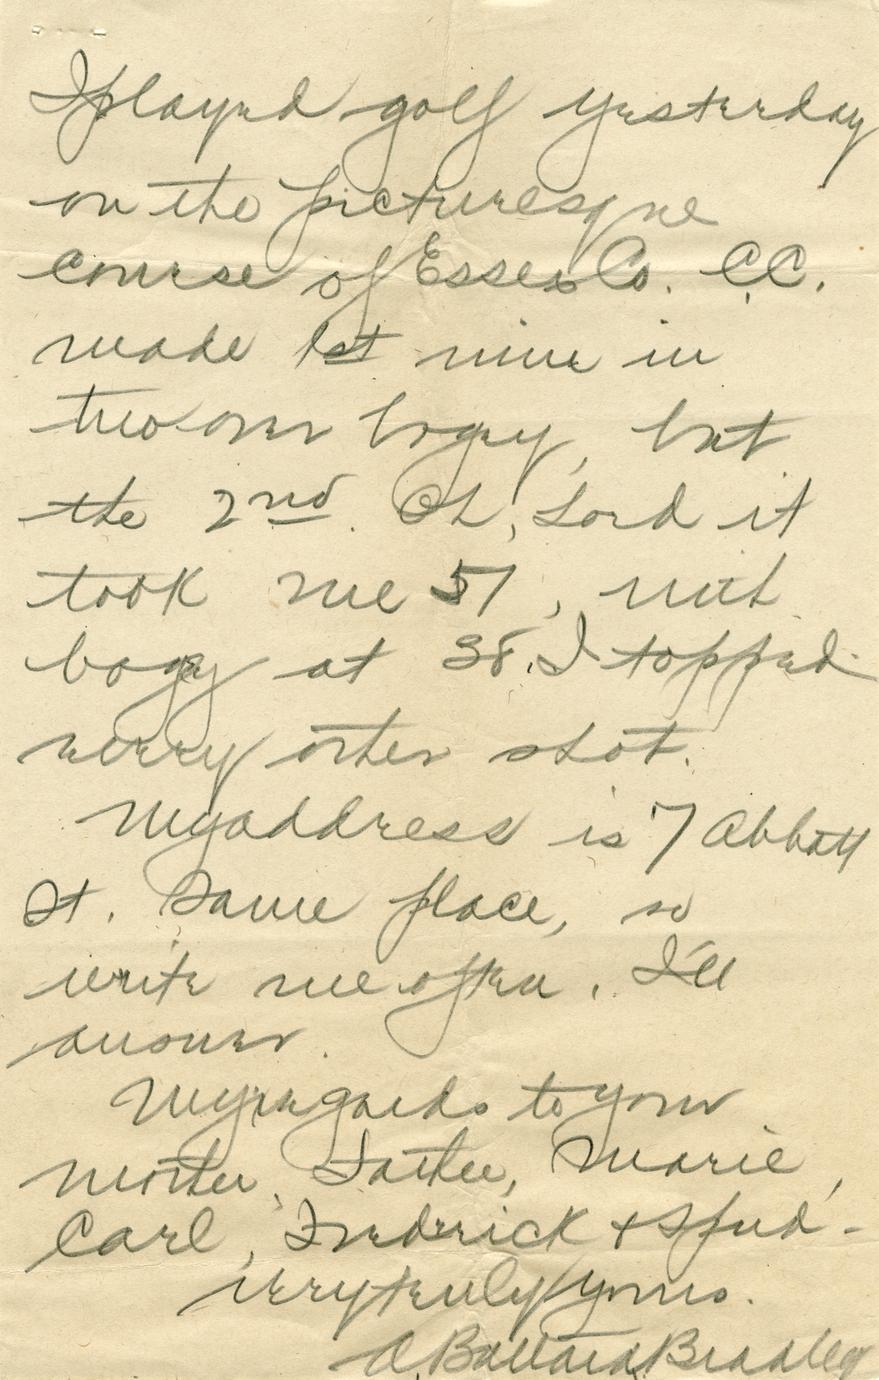 I played golf yesterday
on the picturesque
course of Essex Co. C.C.
made 1st nine in
two over bogey, but
the 2nd. Oh, Lord it
took me 57, with
bogey at 38. I topped
every other shot.
My address is 7 Abbott
St. Same place, so
write me often. I'll
answer.
My regards to your
Mother, Father, Marie,
Carl, Fredrick + Spud -
very truly yours.
A. Ballard Bradley